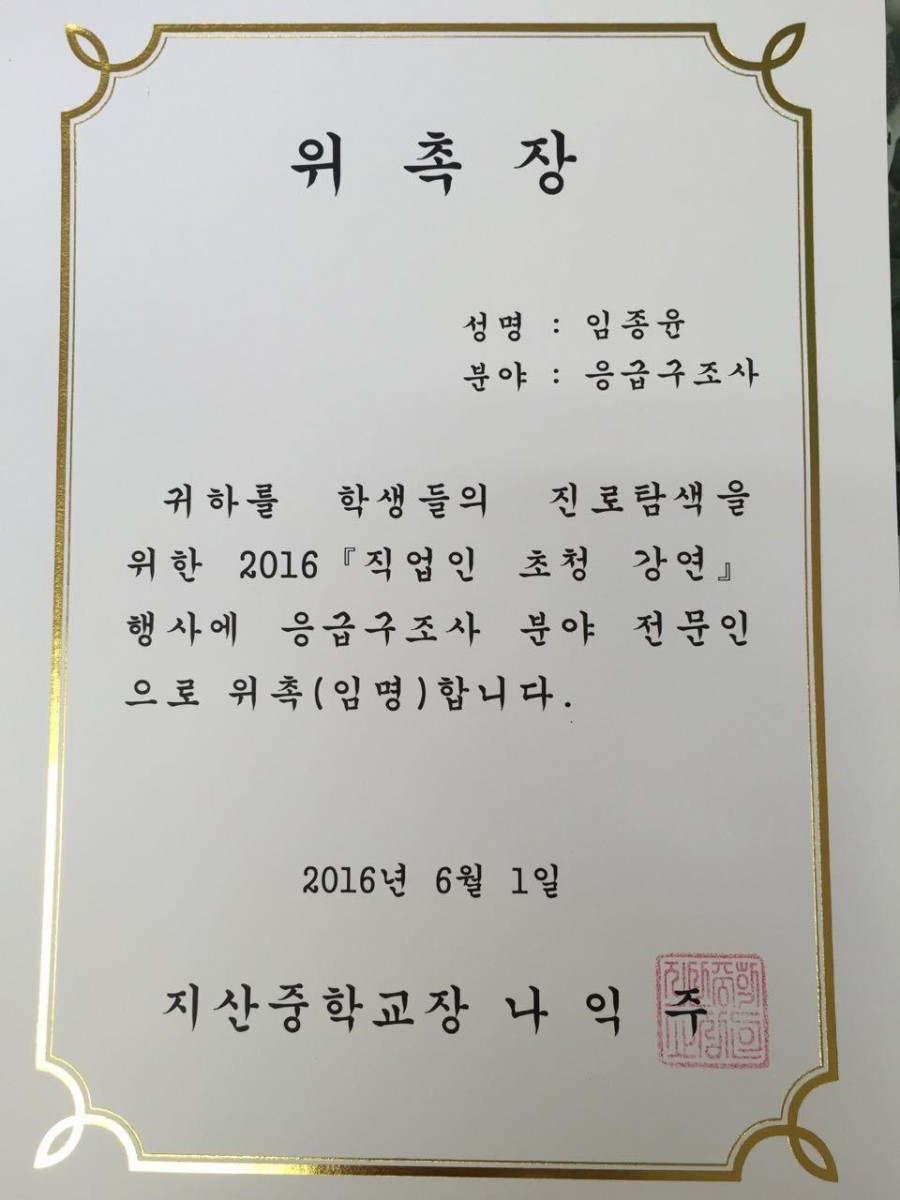 위 촉 장
성명 : 임종윤
분야 : 응급구조사
귀하를 학생들의 진로탐색을
위한 2016『직업인 초청 강연』
행사에 응급구조사 분야 전문인
으로 위촉(임명)합니다.
2016년 6월 1일
지산중학교장 나 익 주